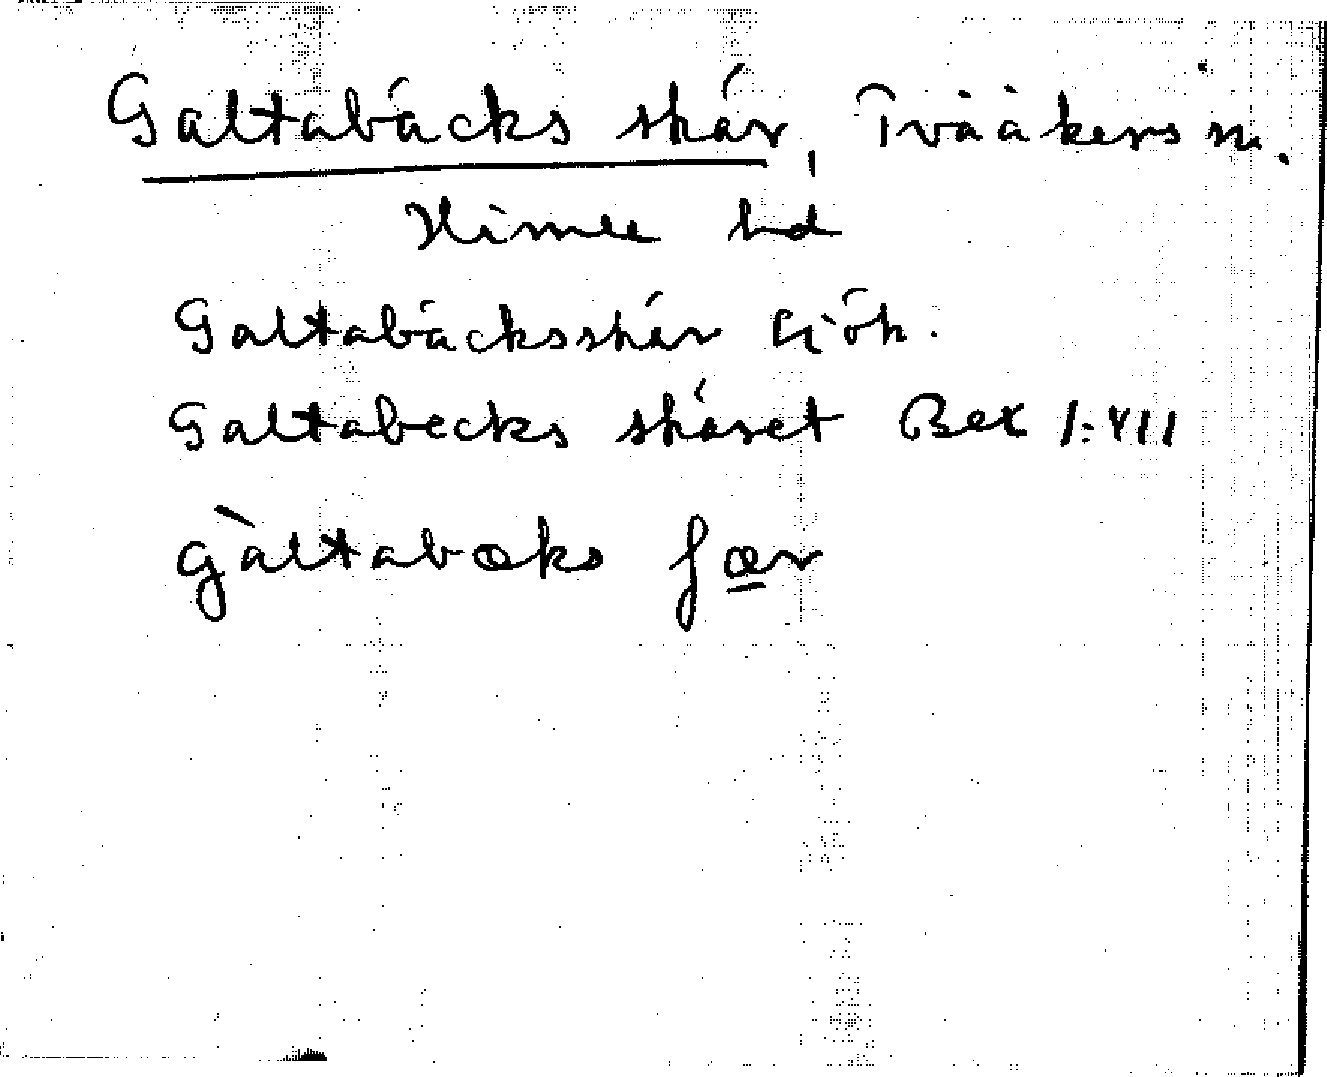 Galtabäcks skär, Tvååkers sn.
Himle hd
Galtabäcksskär Sjök.
Galtabecks skäret Bex 1:VII
gàltabæks ʃæ̱r